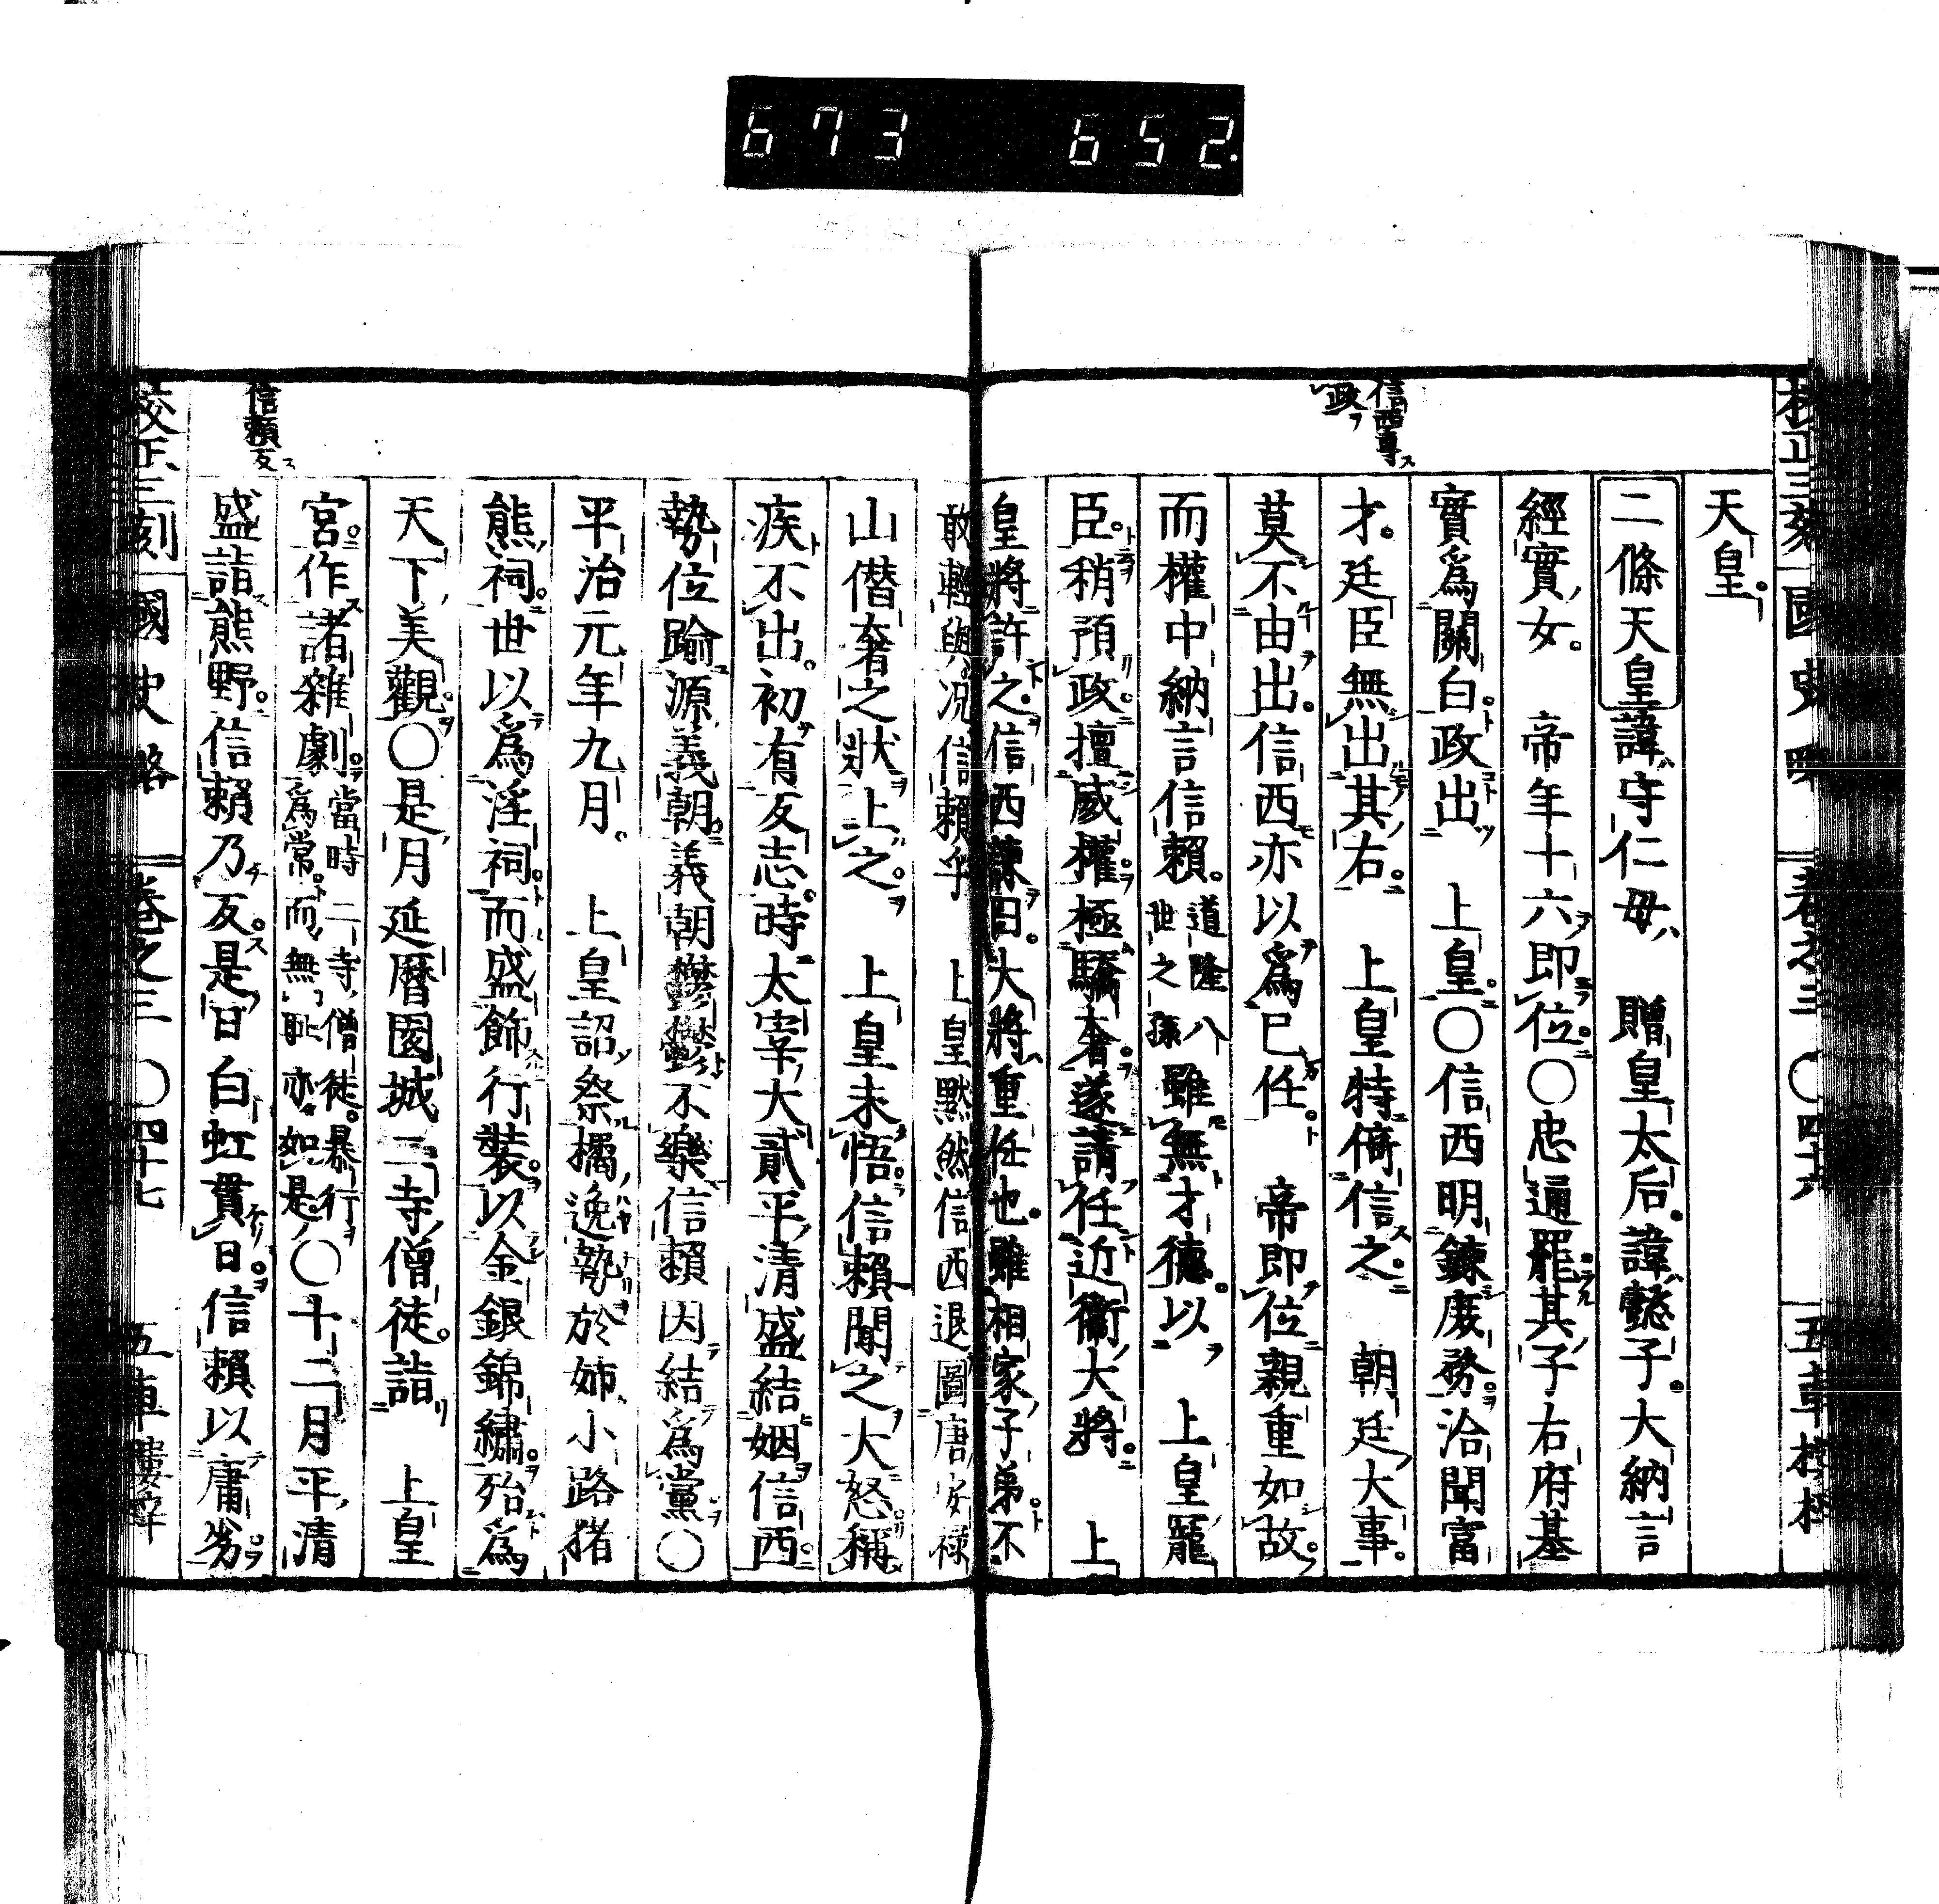 673 652.
校正三刻國史略 卷之三 〇四十六 五車樓梓
信西專
政
天皇。
二條天皇諱守仁母贈皇太后。諱懿子。大納言
經實女。帝年十六即位。〇忠通罷。其子右府基
實爲關白。政出上皇。〇信西明鍊庶務。洽聞富
才。廷臣無出其右。上皇特倚信之。朝廷大事。
莫不由出。信西亦以爲已任。帝即位親重如故。
而權中納言信賴。道隆八
世之孫雖無才德。以上皇寵
臣。稍預政。擅威權。極驕奢。遂請任近衞大將。上
皇將許之。信西諫曰。大將重任也。雖相家子弟。不
敢輕與。况信賴乎上皇默然信西退圖唐安祿
山僭奢之狀上之。上皇未悟。信賴聞之大怒。稱
疾不出。初有反志。時太宰大貳平清盛結姻信西。
勢位踰源義朝。義朝鬱鬱不樂信賴因結爲黨〇
平治元年九月。上皇詔祭橘逸勢於姉小路猪
熊祠。世以爲淫祠。而盛飾行裝。以金銀錦繡。殆爲
天下美觀。〇是月延曆園城二寺僧徒。詣上皇
宮。作諸雜劇。當時二寺僧徒。暴行
爲常。而無耻亦如是。〇十二月平清
盛詣熊野。信賴乃反。是日白虹貫日。信賴以庸劣。
信賴反
校正三刻國史略 卷之三 〇四十七 五車樓梓